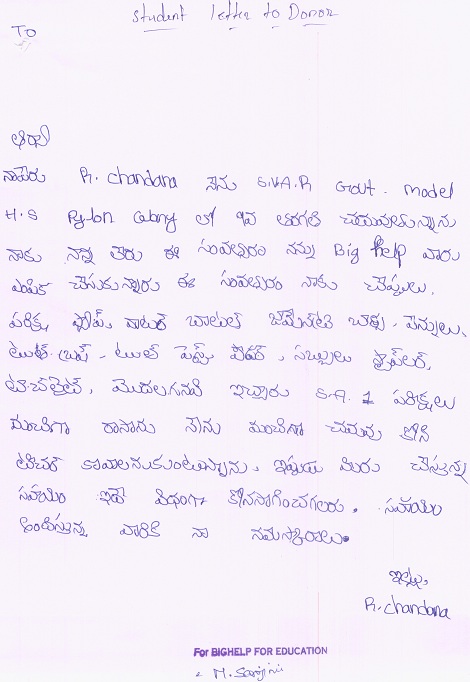 student letter to Donor
TO
నాపేరు R. chandana నేను S.V.A.R Govt. model
H.S Pylon Colony లో 9వ తరగతి చదువుతున్నాను
నాకు నాన్న లేరు ఈ సంవత్సరం నన్ను Big help వారు
ఎంపిక చేసుకున్నారు ఈ సంవత్సరం నాకు చెప్పులు,
పరిక్ష వాటర్ బాటుల్ , పెన్నులు,
టూత్ బ్రష్ - టూత్ పేస్ట్ పౌడర్, సబ్బులు స్టాప్లర్,
టార్చ్‌లైట్, మొదలగునవి ఇచ్చారు S.A. 1 పరిక్షలు
మంచిగా రాసాను నేను మంచిగా చదువు కోని
టిచర్ కావాలనుకుంటున్నాను. ఇప్పుడు మిరు చేస్తున్న
సహయం ఇదే విధంగా కోనసాగించగలరు. సహాయం
అందిస్తున్న వారికి నా నమస్కారాలు.
ఇట్లు,
R. chandana
For BIGHELP FOR EDUCATION